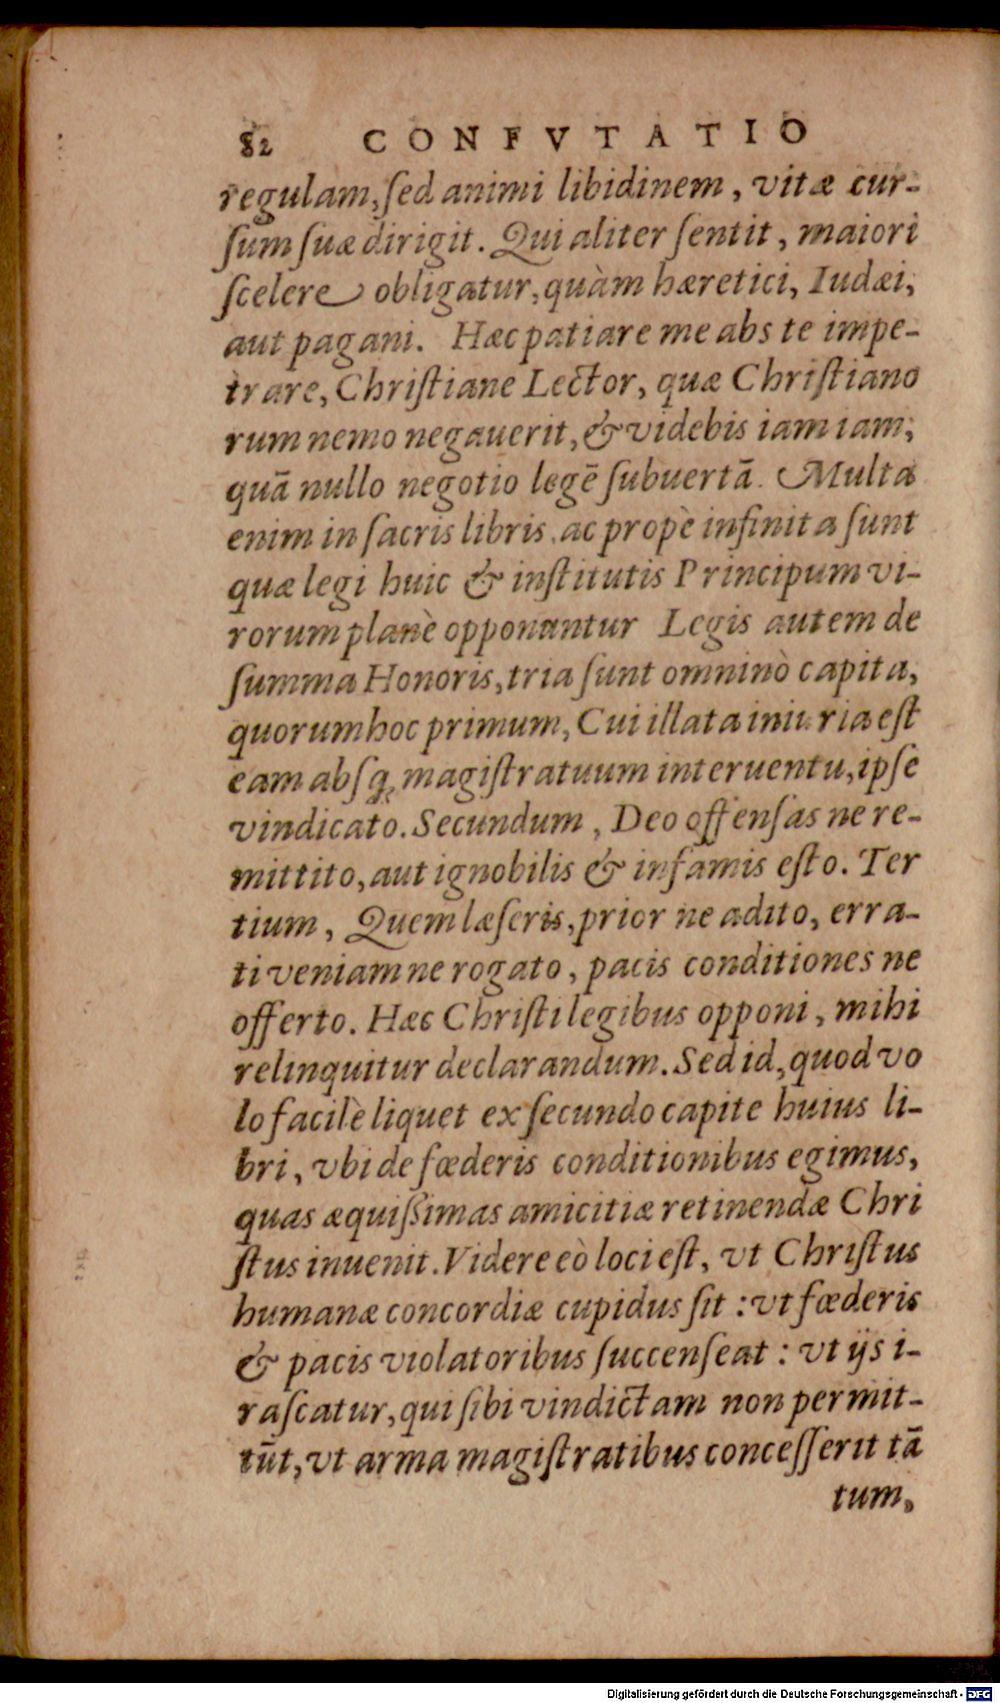 82 CONFVTATIO
regulam, ſed animi libidinem, vitæ cur-
ſum ſuæ dirigit. Qui aliter ſentit, maiori
ſcelere obligatur, quàm hæretici, Iudæi,
aut pagani. Hæc patiare me abs te impe-
trare, Chriſtiane Lector, quæ Chriſtiano
rum nemo negauerit, & videbis iam iam,
quā nullo negotio legē ſubuertā. Multa
enim in ſacris libris, ac propè infinita ſunt
quæ legi huic & inſtitutis Principum vi-
rorum planè opponantur Legis autem de
ſumma Honoris, tria ſunt omninò capita,
quorum hoc primum, Cui illata iniuria eſt
eam abſq; magiſtratuum interuentu, ipſe
vindicato. Secundum, Deo offenſas ne re-
mittito, aut ignobilis & infamis eſto. Ter
tium, Quem læſeris, prior ne adito, erra-
ti veniam ne rogato, pacis conditiones ne
offerto. Hæc Chriſti legibus opponi, mihi
relinquitur declarandum. Sed id, quod vo
lo facilè liquet ex ſecundo capite huius li-
bri, vbi de fœderis conditionibus egimus,
quas æquiſsimas amicitiæ retinendæ Chri
ſtus inuenit. Videre eò loci eſt, vt Chriſtus
humanæ concordiæ cupidus ſit : vt fœderis
& pacis violatoribus ſuccenſeat : vt ijs i-
raſcatur, qui ſibi vindictam non permit-
tūt, vt arma magiſtratibus conceſſerit tā
tum,
Digitalisierung gefördert durch die Deutsche Forschungsgemeinschaft - DFG